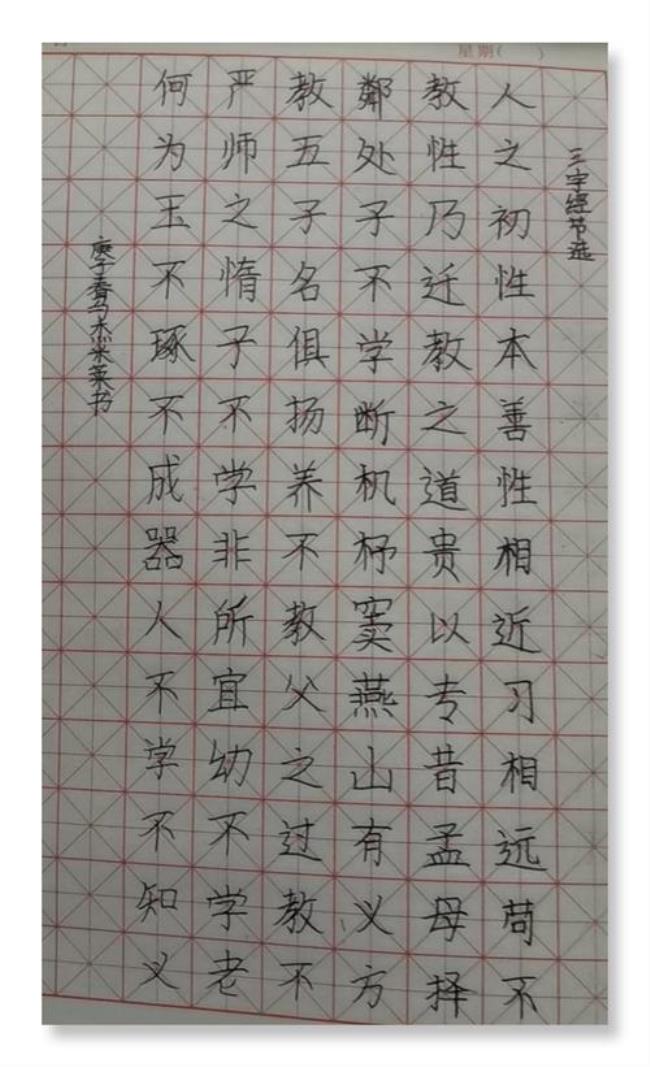 星期( )
三字经节选
人之初性本善性相近习相远苟不
教性乃迁教之道贵以专昔孟母择
鄰处子不学断机杼窦燕山有义方
教五子名俱扬养不教父之过教不
严师之惰子不学非所宜幼不学老
何为玉不琢不成器人不学不知义
庚子春马书